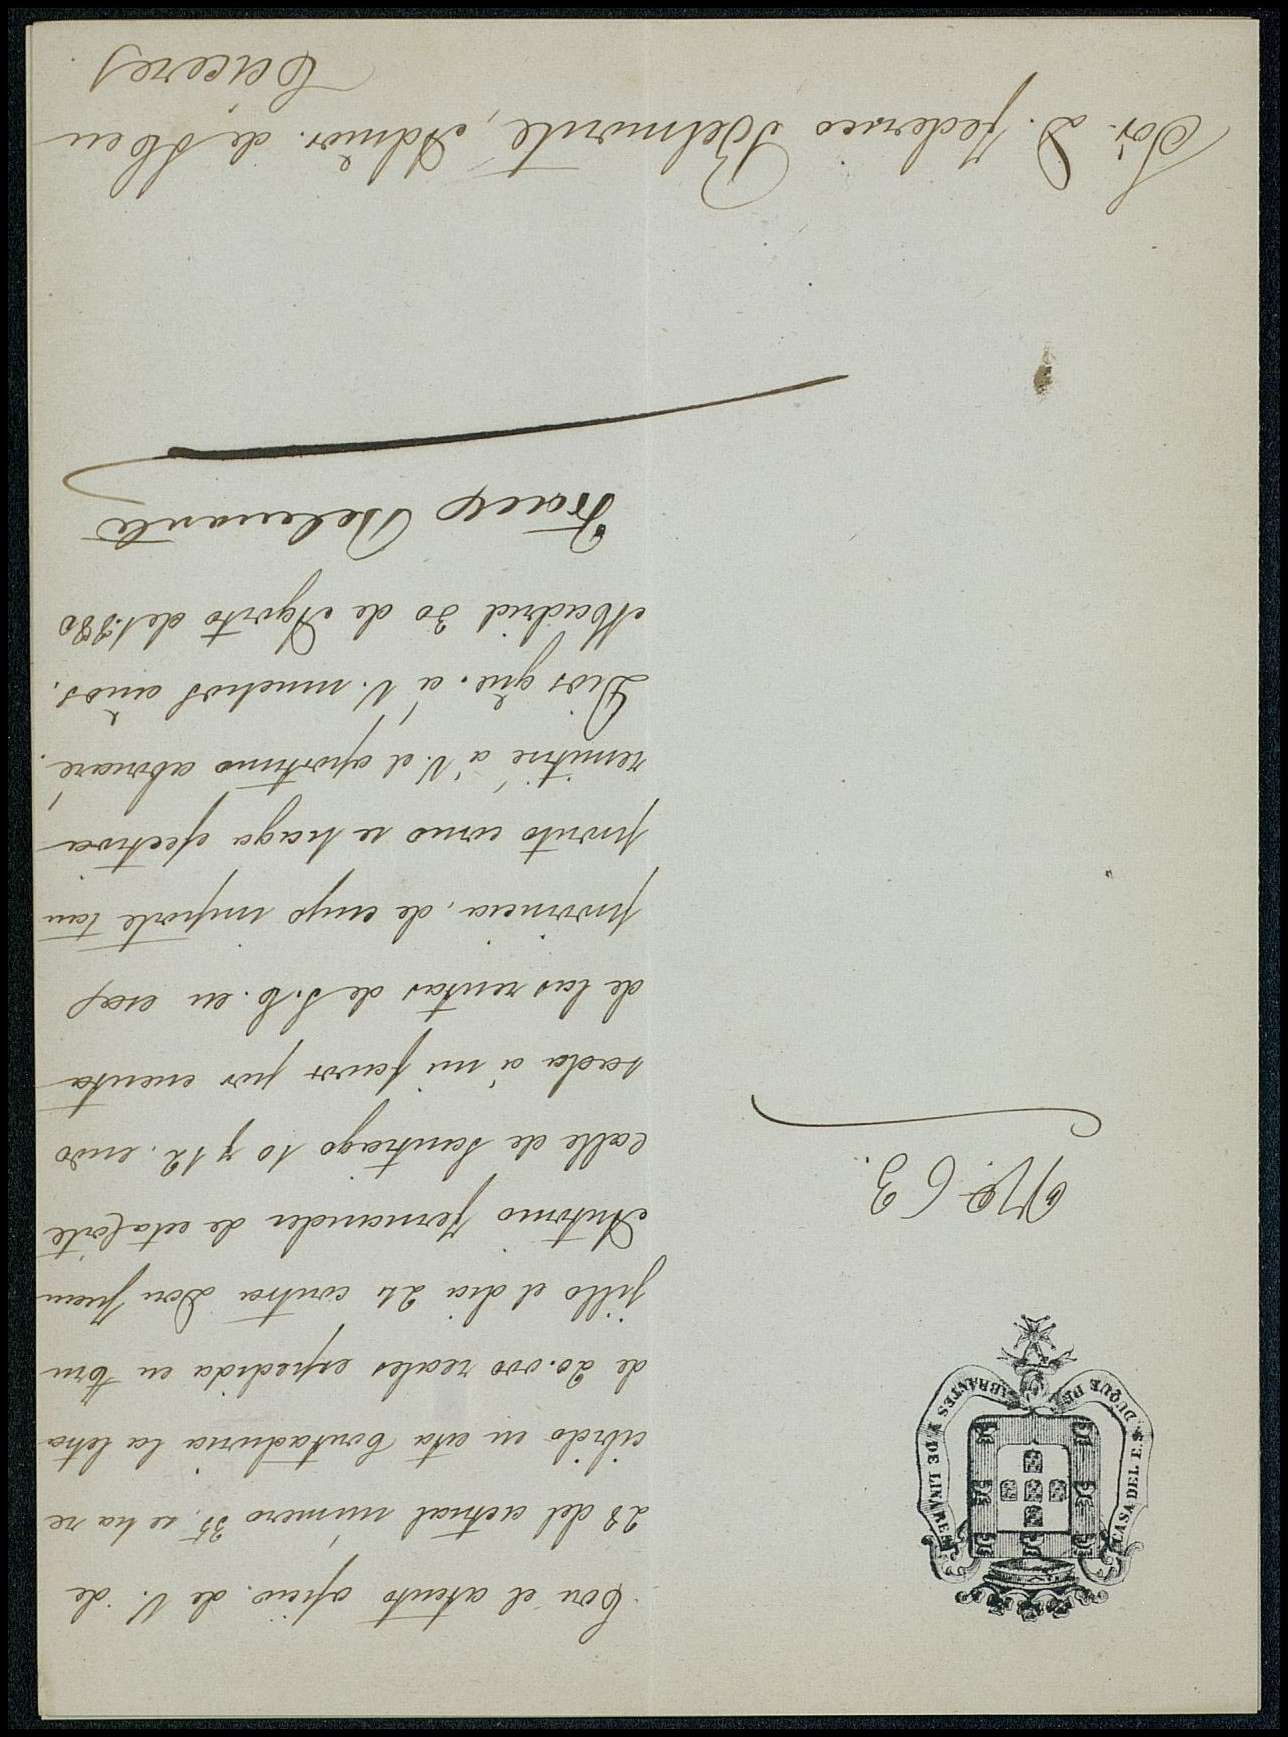 CASA DEL E.S. DUQUE DE ABRANTES Y DE LINARES
Nº 63.
Con el atento oficio de V. de
28 del actual número 35, se ha re
cibido en esta Contaduria la letra
de 20.000 reales expedida en Tru
jillo el dia 24 contra Don Juan
Antonio Fernandez de esta Corte
Calle de Santiago 10 y 12. endo
sada á mi favor por cuenta
de las rentas de S.E. en esa
provincia, de cuyo importe tan
pronto como se haga efectiva
remitiré á V. el oportuno abonaré.
Dios gûe. á V. muchos años.
Madrid 30 de Agosto de 1.880
Franco Belmonte
Sor. D. Federico Belmonte, Admor. de SE en
Caceres